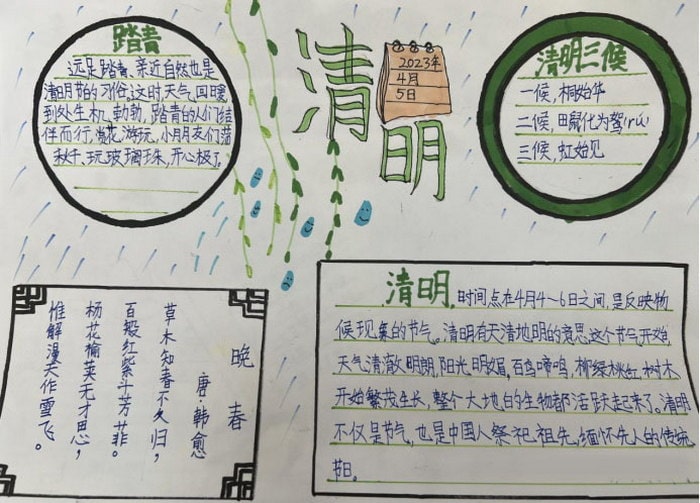 踏青
远足踏青，亲近自然也是
清明节的习俗，这时，天气回暖
到处生机勃勃，踏青的人们结
伴而行，赏花，游玩，小朋友们荡
秋千，玩玻璃珠，开心极了。
清明
2023年
4月
5日
清明三候
一候，桐始华
二候，田鼠化为鴽(rú)
三候，虹始见
晚春
唐·韩愈
草木知春不久归，
百般红紫斗芳菲。
杨花榆荚无才思，
惟解漫天作雪飞。
清明，时间点在4月4~6日之间，是反映物
候现象的节气。清明有天清地明的意思，这个节气开始，
天气清澈明朗，阳光明媚，百鸟啼鸣，柳绿桃红，树木
开始繁茂生长，整个大地的生物都活跃起来了。清明
不仅是节气，也是中国人祭祀祖先，缅怀先人的传统
节日。